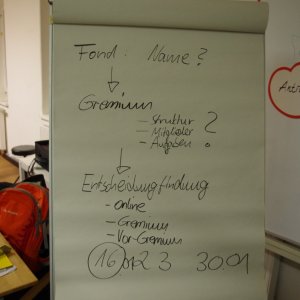 Fond: Name?
Gremium
- Struktur
- Mitglieder
- Aufgaben
?
Entscheidungsfindung
- online
- Gremium
- Vor-Gremium
16 3 30.01
Antr